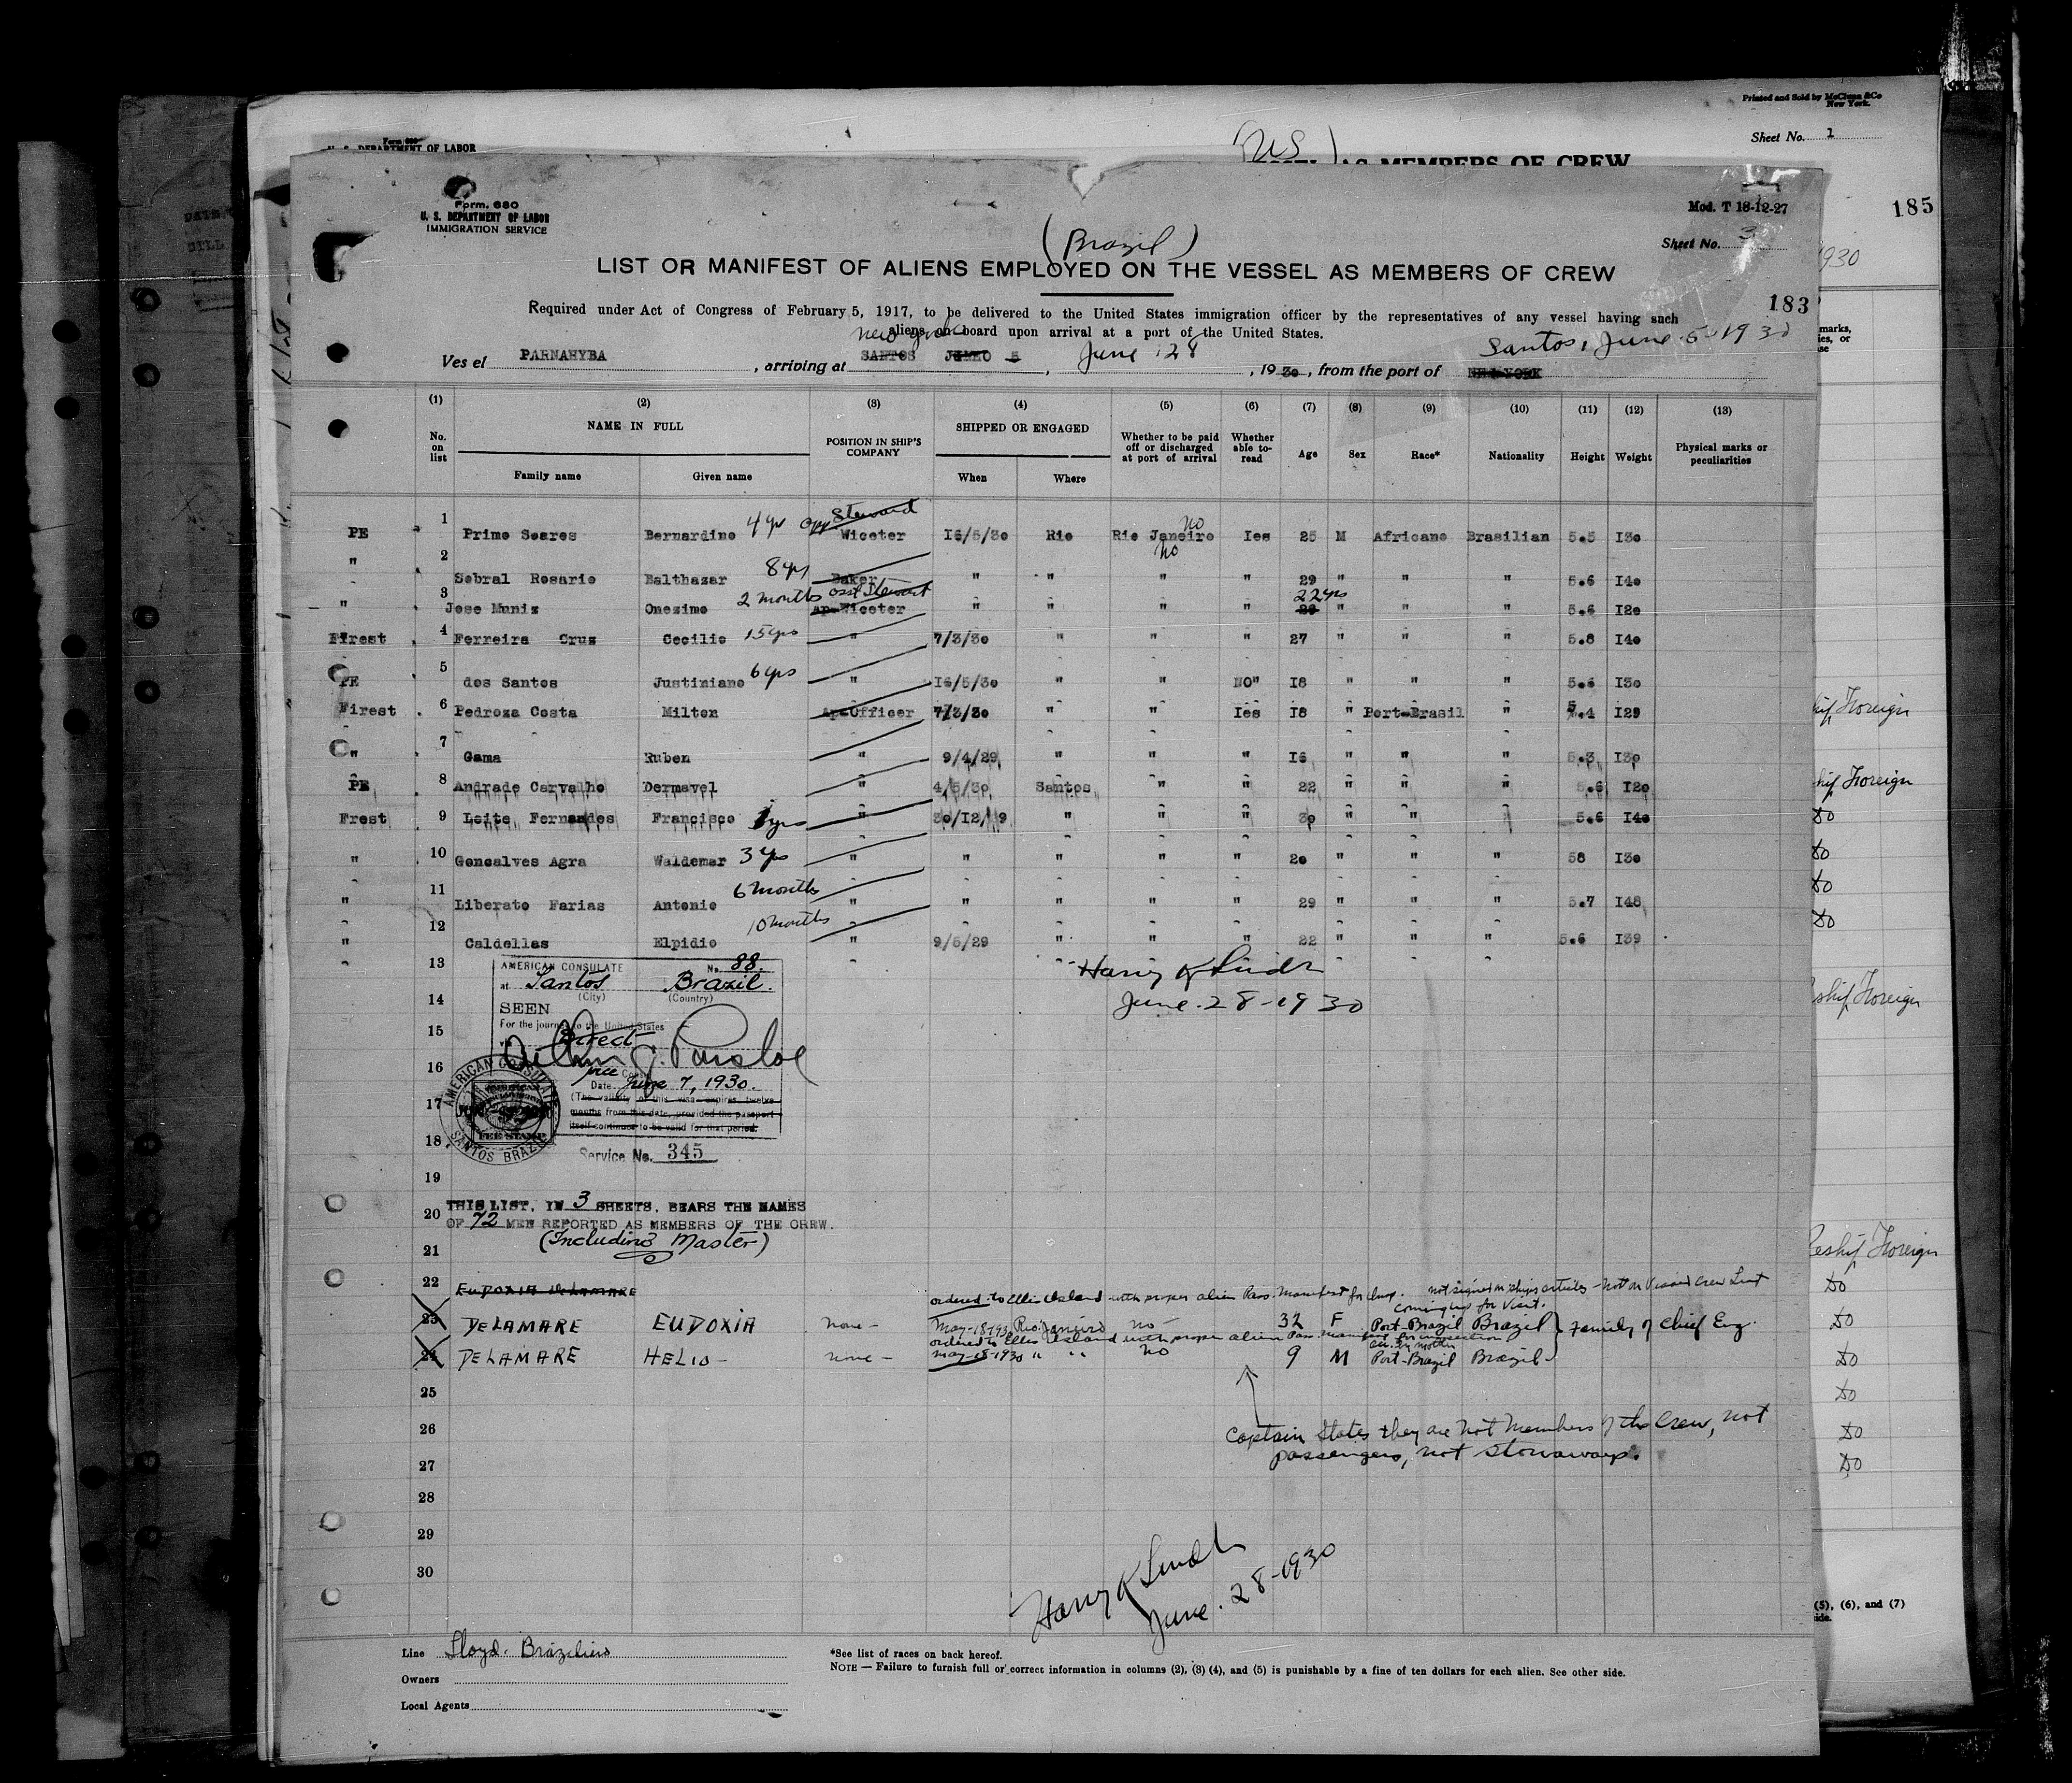 Printed and Sold by McClunn &Co
New York.
Sheet No. 1
Form 680
U. S. DEPARTMENT OF LABOR
(US)
AS MEMBERS OF CREW
185
1930
Form. 680
U. S. DEPARTMENT OF LABOR
IMMIGRATION SERVICE
Mod. T 18-12-27
Sheet No. 3
(Brazil)
LIST OR MANIFEST OF ALIENS EMPLOYED ON THE VESSEL AS MEMBERS OF CREW
183
Required under Act of Congress of February 5, 1917, to be delivered to the United States immigration officer by the representatives of any vessel having such
aliens on board upon arrival at a port of the United States.
New York
Santos, June 5-1930
Ves el PARNAHYBA , arriving at SANTOS JUNHO 5 , June 28 , 1930 , from the port of NEW YORK
(1) (2) (3) (4) (5) (6) (7) (8) (9) (10) (11) (12) (13)
No. on list NAME IN FULL POSITION IN SHIP'S COMPANY SHIPPED OR ENGAGED Whether to be paid off or discharged at port of arrival Whether able to- read Age Sex Race* Nationality Height Weight Physical marks or peculiarities
Family name Given name When Where
PE 1 Primo Soares Bernardino 4 yrs Steward Wiceter 16/5/30 Rio Rio Janeiro no Ies 25 M Africano Brasilian 5.5 I3o
" 2 Sobral Rosario Balthazar 8 yrs Baker " " " no " 29 " " " 5.6 I4o
" 3 Jose Muniz Onezimo 2 months asst Stewart ap-Wiceter " " " " 22 yrs " " " 5.6 I2o
Firest 4 Ferreira Cruz Cecilio 15 yrs " 7/3/3o " " " 27 " " " 5.8 I4o
PE 5 dos Santos Justiniano 6 yrs " I6/5/3o " " NO" I8 " " " 5.6 I3o
Firest 6 Pedroza Costa Milton Ap-Officer 7/3/3o " " Ies I8 " Port-Brasil " 5.4 I29
" 7 Gama Ruben " 9/4/29 " " " I6 " " " 5.3 I3o
PE 8 Andrade Carvalho Dermavel " 4/5/3o Santos " " 22 " " " 5.6 I2o
Frest 9 Leite Fernandes Francisco yrs " 3o/I2/ 9 " " " 3o " " " 5.6 I4o
" 10 Goncalves Agra Waldemar 3 yrs " " " " " 2o " " " 58 I3o
" 11 Liberato Farias Antonio 6 months " " " " " 29 " " " 5.7 I48
" 12 Caldellas Elpidio 10 months " 9/5/29 " " " 22 " " " 5.6 I39
13
14
15
16
17
18
19
20
21
AMERICAN CONSULATE No. 88.
at Santos Brazil.
(City) (Country)
SEEN
For the journey to the United States
via Direct
Vice Consul
Date June 7, 1930.
(The validity of this visa expires twelve
months from this date, provided the passport
itself continues to be valid for that period.
AMERICAN CONSULATE
SANTOS BRAZIL
FEE STAMP
Service No. 345
Harry K Lindh
June. 28-1930
THIS LIST, IN 3 SHEETS, BEARS THE NAMES
OF 72 MEN REPORTED AS MEMBERS OF THE CREW.
(Including Master)
22 EUDOXIA DELAMARE
ordered to Ellis Island with proper alien Pass. Manifest for Insp. not signed on ships articles - not on Visaed Crew List
coming up for Visit.
23 DELAMARE EUDOXIA none - May-18-1930 Rio Janeiro no - 32 F Port-Brazil Brazil } family of Chief Eng.
ordered to Ellis Island with proper alien Pass. manifest for inspection
acc. by mother
24 DELAMARE HELIO - none - May-18-1930 " " no 9 M Port-Brazil Brazil
25
26
27
28
29
30
Captain states they are not members of the Crew, not
passengers, not stowaways.
Harry K Lindh
June. 28-1930
Line Lloyd. Braziliero
Owners
Local Agents
*See list of races on back hereof.
NOTE — Failure to furnish full or correct information in columns (2), (3) (4), and (5) is punishable by a fine of ten dollars for each alien. See other side.
Foreign
Foreign
DO
DO
DO
DO
Foreign
Reship Foreign
DO
DO
DO
DO
DO
DO
(5), (6), and (7)